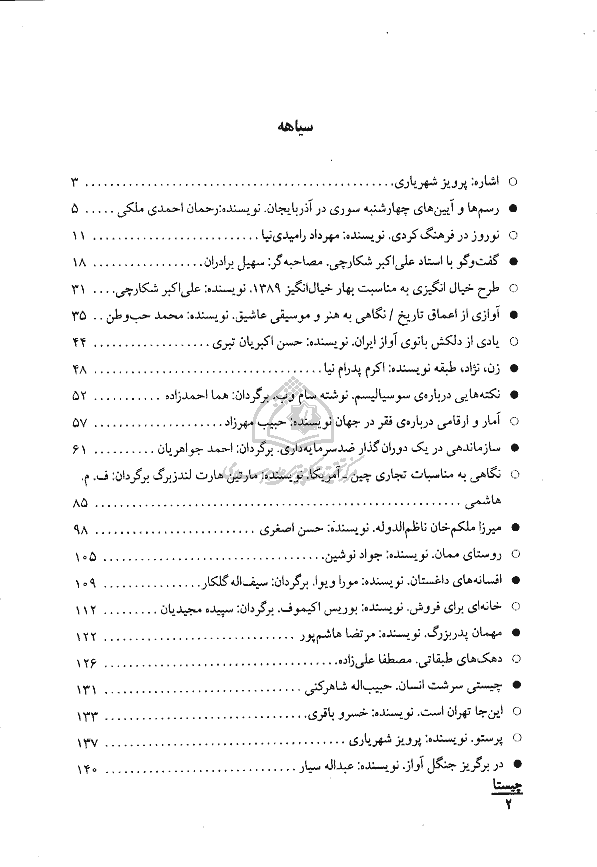 سیاهه
○ اشاره: پرویز شهریاری ........ ۳
● رسم‌ها و آیین‌های چهارشنبه سوری در آذربایجان. نویسنده:رحمان احمدی ملکی ..... ۵
○ نوروز در فرهنگ کردی. نویسنده: مهرداد رامیدی‌نیا ........ ۱۱
● گفت‌وگو با استاد علی‌اکبر شکارچی. مصاحبه‌گر: سهیل برادران ........ ۱۸
○ طرح خیال انگیزی به مناسبت بهار خیال‌انگیز ۱۳۸۹. نویسنده: علی‌اکبر شکارچی .... ۳۱
● آوازی از اعماق تاریخ / نگاهی به هنر و موسیقی عاشیق. نویسنده: محمد حب‌وطن .. ۳۵
○ یادی از دلکش بانوی آواز ایران. نویسنده: حسن اکبریان تبری ........ ۴۴
● زن، نژاد، طبقه نویسنده: اکرم پدرام نیا ........ ۴۸
● نکته‌هایی درباره‌ی سوسیالیسم. نوشته سام وب. برگردان: هما احمدزاده ........ ۵۲
○ آمار و ارقامی درباره‌ی فقر در جهان نویسنده: حبیب مهرزاد ........ ۵۷
● سازماندهی در یک دوران گذار ضدسرمایه‌داری. برگردان: احمد جواهریان ........ ۶۱
○ نگاهی به مناسبات تجاری چین ـ آمریکا. نویسنده: مارتین هارت لندزبرگ برگردان: ف. م.
هاشمی ........ ۸۵
● میرزا ملکم‌خان ناظم‌الدوله. نویسنده: حسن اصغری ........ ۹۸
○ روستای ممان. نویسنده: جواد نوشین ........ ۱۰۵
● افسانه‌های داغستان. نویسنده: مورا ویوا. برگردان: سیف‌اله گلکار ........ ۱۰۹
○ خانه‌ای برای فروش. نویسنده: بوریس اکیموف. برگردان: سپیده مجیدیان ........ ۱۱۲
● مهمان پدربزرگ. نویسنده: مرتضا هاشم‌پور ........ ۱۲۲
○ دهک‌های طبقاتی. مصطفا علی‌زاده ........ ۱۲۶
● چیستی سرشت انسان. حبیب‌اله شاهرکنی ........ ۱۳۱
○ این‌جا تهران است. نویسنده: خسرو باقری ........ ۱۳۳
○ پرستو. نویسنده: پرویز شهریاری ........ ۱۳۷
● در برگریز جنگل آواز. نویسنده: عبداله سیار ........ ۱۴۰
چیستا
۲